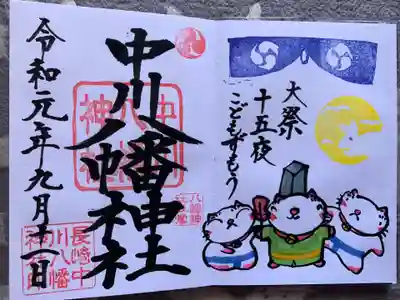 大祭
十五夜
こどもずもう
中川八幡神社
令和元年九月十一日
長崎中
川八幡
神社